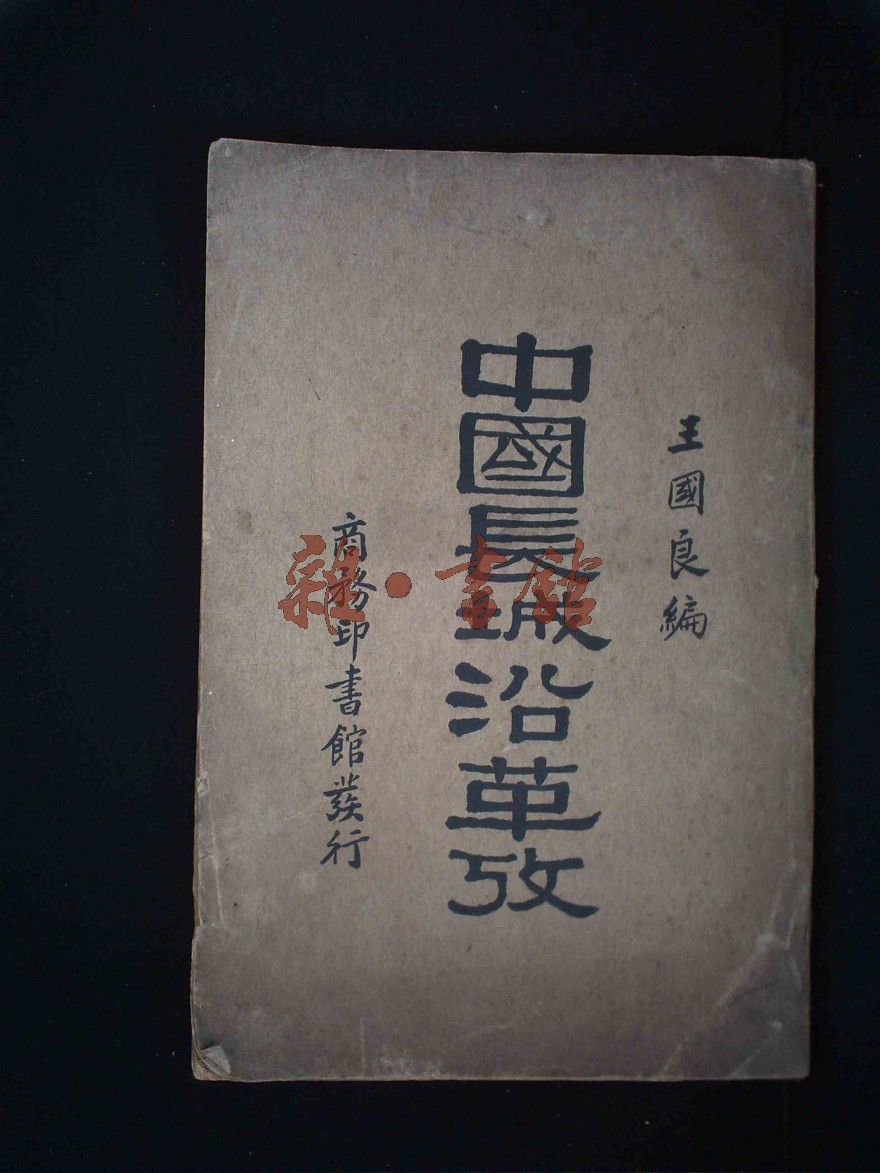 王國良編
中國長城沿革攷
商務印書館發行
雜·書館